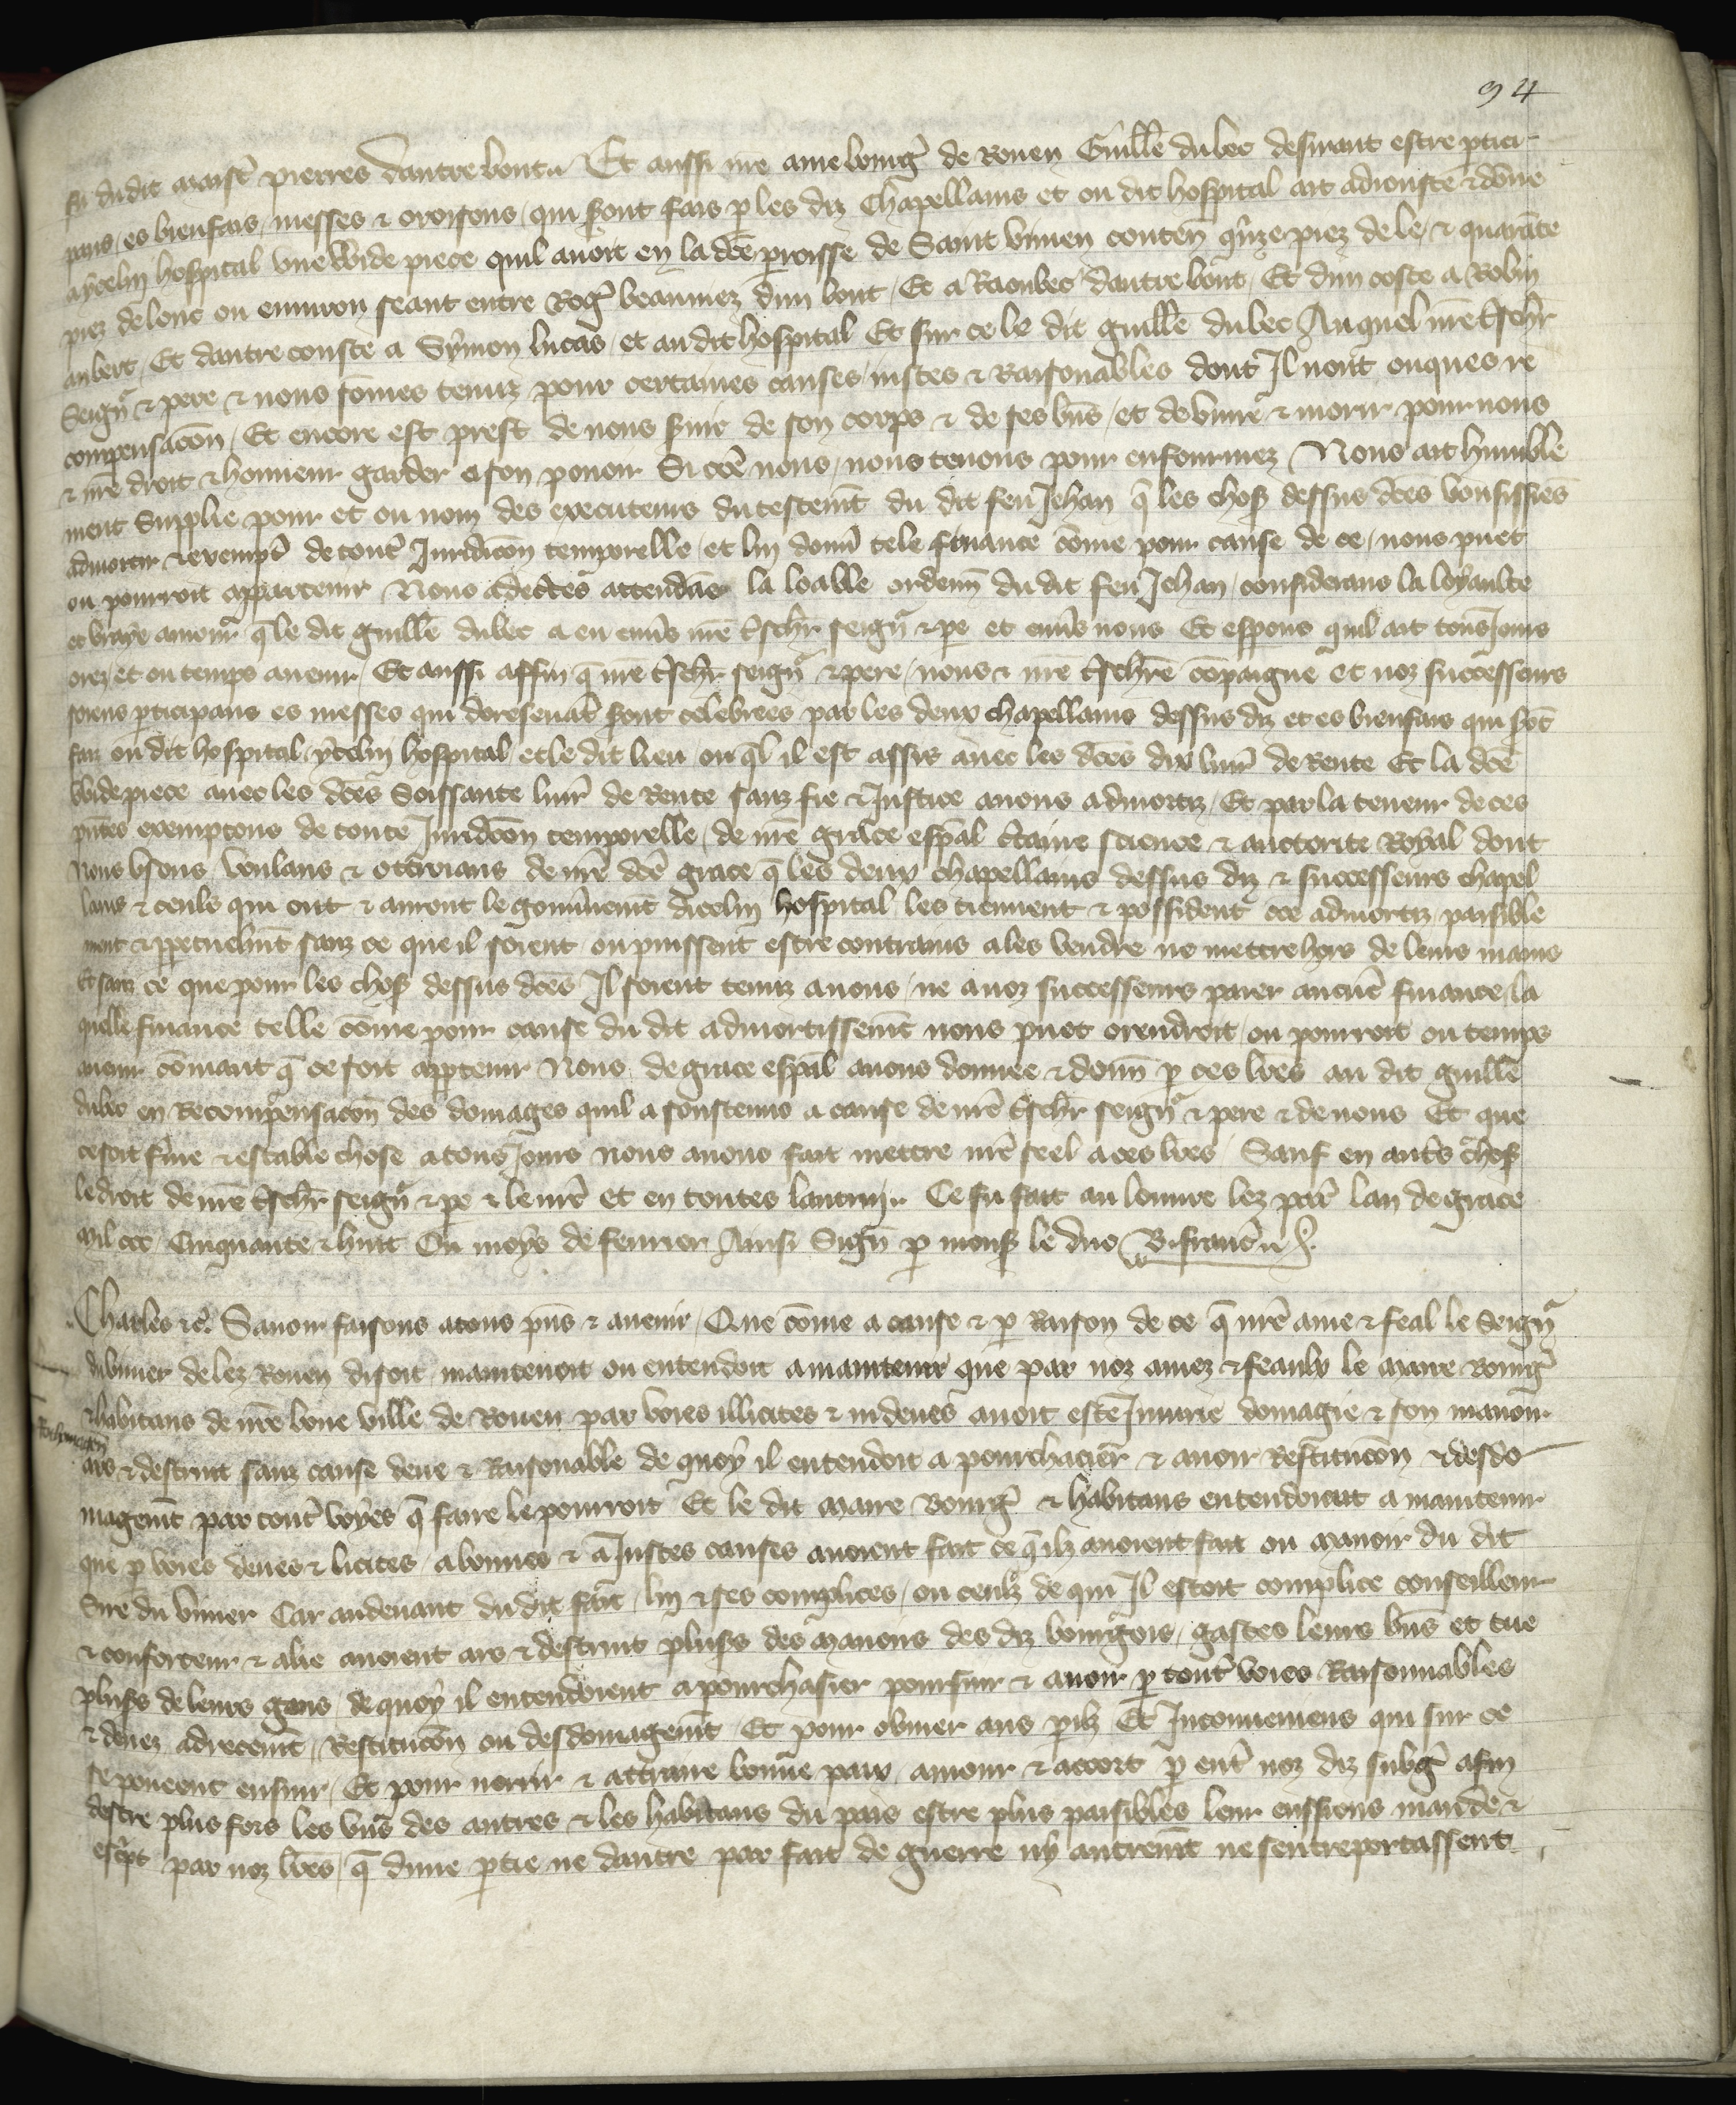 94
fu du dit maistͬ pierres dautre bout. Et aussi nr̃e ame bourgͬ de Rouen Guill̃e du bec desirant estre ptici
pans, es bienfais, messes & oroisons, qui s̾ont fais p les diz Chapellains et ou dit hospital ait adiouste & dõne
a ycelui hospital vne vuide piece quil auoit en la dc̃e p̃roisse de Saint viuien conteñ q̃nze piez de le, & quarãte
piez de lonc ou enuiron seant entre Rogͬ beaumez dun bout, Et a Raoul bec dautre bout, Et dun coste a Robin
aubert, Et dautre couste a Symon lucas, et au dit hospital Et sur ce le dit guill̃e du bec Auquel nr̃e t̃schr̃
Seignͬ & pere & nous som̃es tenuz pour certaines causes, iustes & Raisonables dont Il nont onques re
compensacõn, Et encore est prest de nous s̾uir de son corps & de ses bñs, et de viure & morir pour nous
& nr̃e droit & honneur garder a son pouoir Si cõe nous, nous tenons pour enfourmez, Nous ait humble
ment Supplie pour et ou nom des executeurs du testem̃t du dit feu Jehan q̃ les chos̾ dessus dc̃es voussissiẽs
admortir & exemptͬ de toutͬ Juridicõn temporelle, et lui doñ tele finance cõme pour cause de ce, nous puet
ou pourroit appartenir Nous adec̃tes attendãs la loable ordeñ du dit feu Jehan, considerans la loyaulte
et vraye amour q̃ le dit guill̃e du bec a eu enũs nr̃e t̃schr̃ seignͬ & pe et enũs nous Et esp̃ons quil ait tousJours
orez, et ou temps auenir, Et aussi affin q̃ nr̃e t̃schr̃ seignͬ & pere, nous & nr̃e t̃schr̃e cõpaigne et noz successeurs
soiens pticipans es messes qui doresenauͭ s̾ont celebrees par les deux chapellains dessus diz et es bienfais qui s̾ot̃
faiz ou dit hospital, ycelui hospital et le dit lieu ou q̃l il est assis auec les dc̃es dix liurͬ de Rente Et la dc̃e
vuide piece auec les dc̃es Soissante liurͬ de Rente sanz fie & Justice auons admortiz, Et par la teneur de ces
pñtes exemptons de toute Juridicõn temporelle, de nr̃e grace esp̃al c̃taine science & auctorite Royal dont
Nous vsons, voulans & ottroians de nr̃e dc̃e grace q̃ les deux chapellains dessus diz & successeurs chapel
lains & ceuls qui ont & auront le gouũnem̃t dicelui hospital les tiennent & possident cõe admortiz paisible
ment & ppetuelm̃t sanz ce que il soient ou puissent estre contrains a les vendre ne mettre hors de leurs mains
Et sanz ce que pour les chos̾ dessus dc̃es Il soient tenuz a nous, ne a noz successeurs paier aucũe finance, la
quelle finance telle cõme pour cause du dit admortissem̃t nous puet orendroit, ou pourroit ou temps
auenir cõmant q̃ ce soit apptenir Nous de grace esp̃al auons donnee & doñ p ces lr̃es au dit guill̃e
du bec en Recompensacõn des domages quil a soustenus a cause de nr̃e t̃schr̃ seignͬ & pere & de nous Et que
ce soit fĩme & estable chose a tousJours nous auons fait mettre nr̃e seel a ces lr̃es, Sauf en autͬs chos̾
le droit de nr̃e t̃schr̃ seignͬ & pe & le nr̃e et en toutes lautruy. Ce fu fait au louure lez parͬ lan de grace
Mil ccc, Cinquante & huit Ou moys de feurier Ainsi Signͤ p mons̾ le duc B. franc̾
Charles &c̾. Sauoir faisons a tous pñs & auenir, Que cõme a cause & p Raison de ce q̃ nr̃e ame & feal le Seignͬ
du viuier de lez Rouen disoit, maintenoit ou entendoit a maintenir que par noz amez & feaulx le Maire Bourgͬ
& habitans de nr̃e bone ville de Rouen par voies illicites & indeues auoit este Jniurie domagie & son manoir
ars & destruit sanz cause deue & Raisonable de quoy il entendoit a pourchacier & auoir Restitucõn & desdo
magem̃t par toutͬ voyes q̃ faire le pourroit Et le dit Maire Bourgͬ & habitans entendoient a maintenir
que p voies deues & licites, a bonnes & a Justes causes auoient fait ce q̃ ilz auoient fait ou Manoir du dit
Sire du viuier Car au deuant du dit fait, lui & ses complices, ou ceulz de qui Il estoit complice conseilleur
& conforteur & alie auoient ars & destruis plus̾s des Manoirs des diz bourgois, gastes leurs bñs et tue
plus̾s de leurs gens, de quoy il entendoient a pourchasier poursuir & auoir p toutͬ voies Raisonnables
& deuez adrecem̃t, Restitucõn ou desdomagem̃t Et pour obuier aus p̃ilz Et Jnconueniens qui sur ce
se pouoent ensuir, Et pour norrir & attraire bonne paix, amour & accort p entͬ noz diz subgͬ afin
destre plus fors les vñs des autres & les habitans du pais estre plus paisibles leur eussions mande &
esc̾pt par noz lr̃es, q̃ dune ptie ne dautre par fait de guerre ny autrem̃t ne sentreportassent